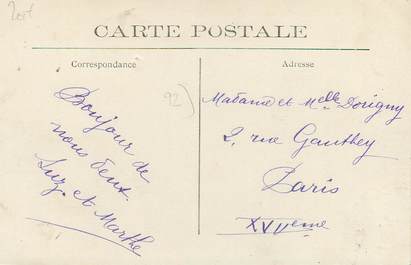 CARTE POSTALE
Correspondance
Adresse
92)
Bonjour de
nous deux.
Suz. et Marthe
Madame et Melle Dorigny
2, rue Gauthey
Paris
XVIIeme